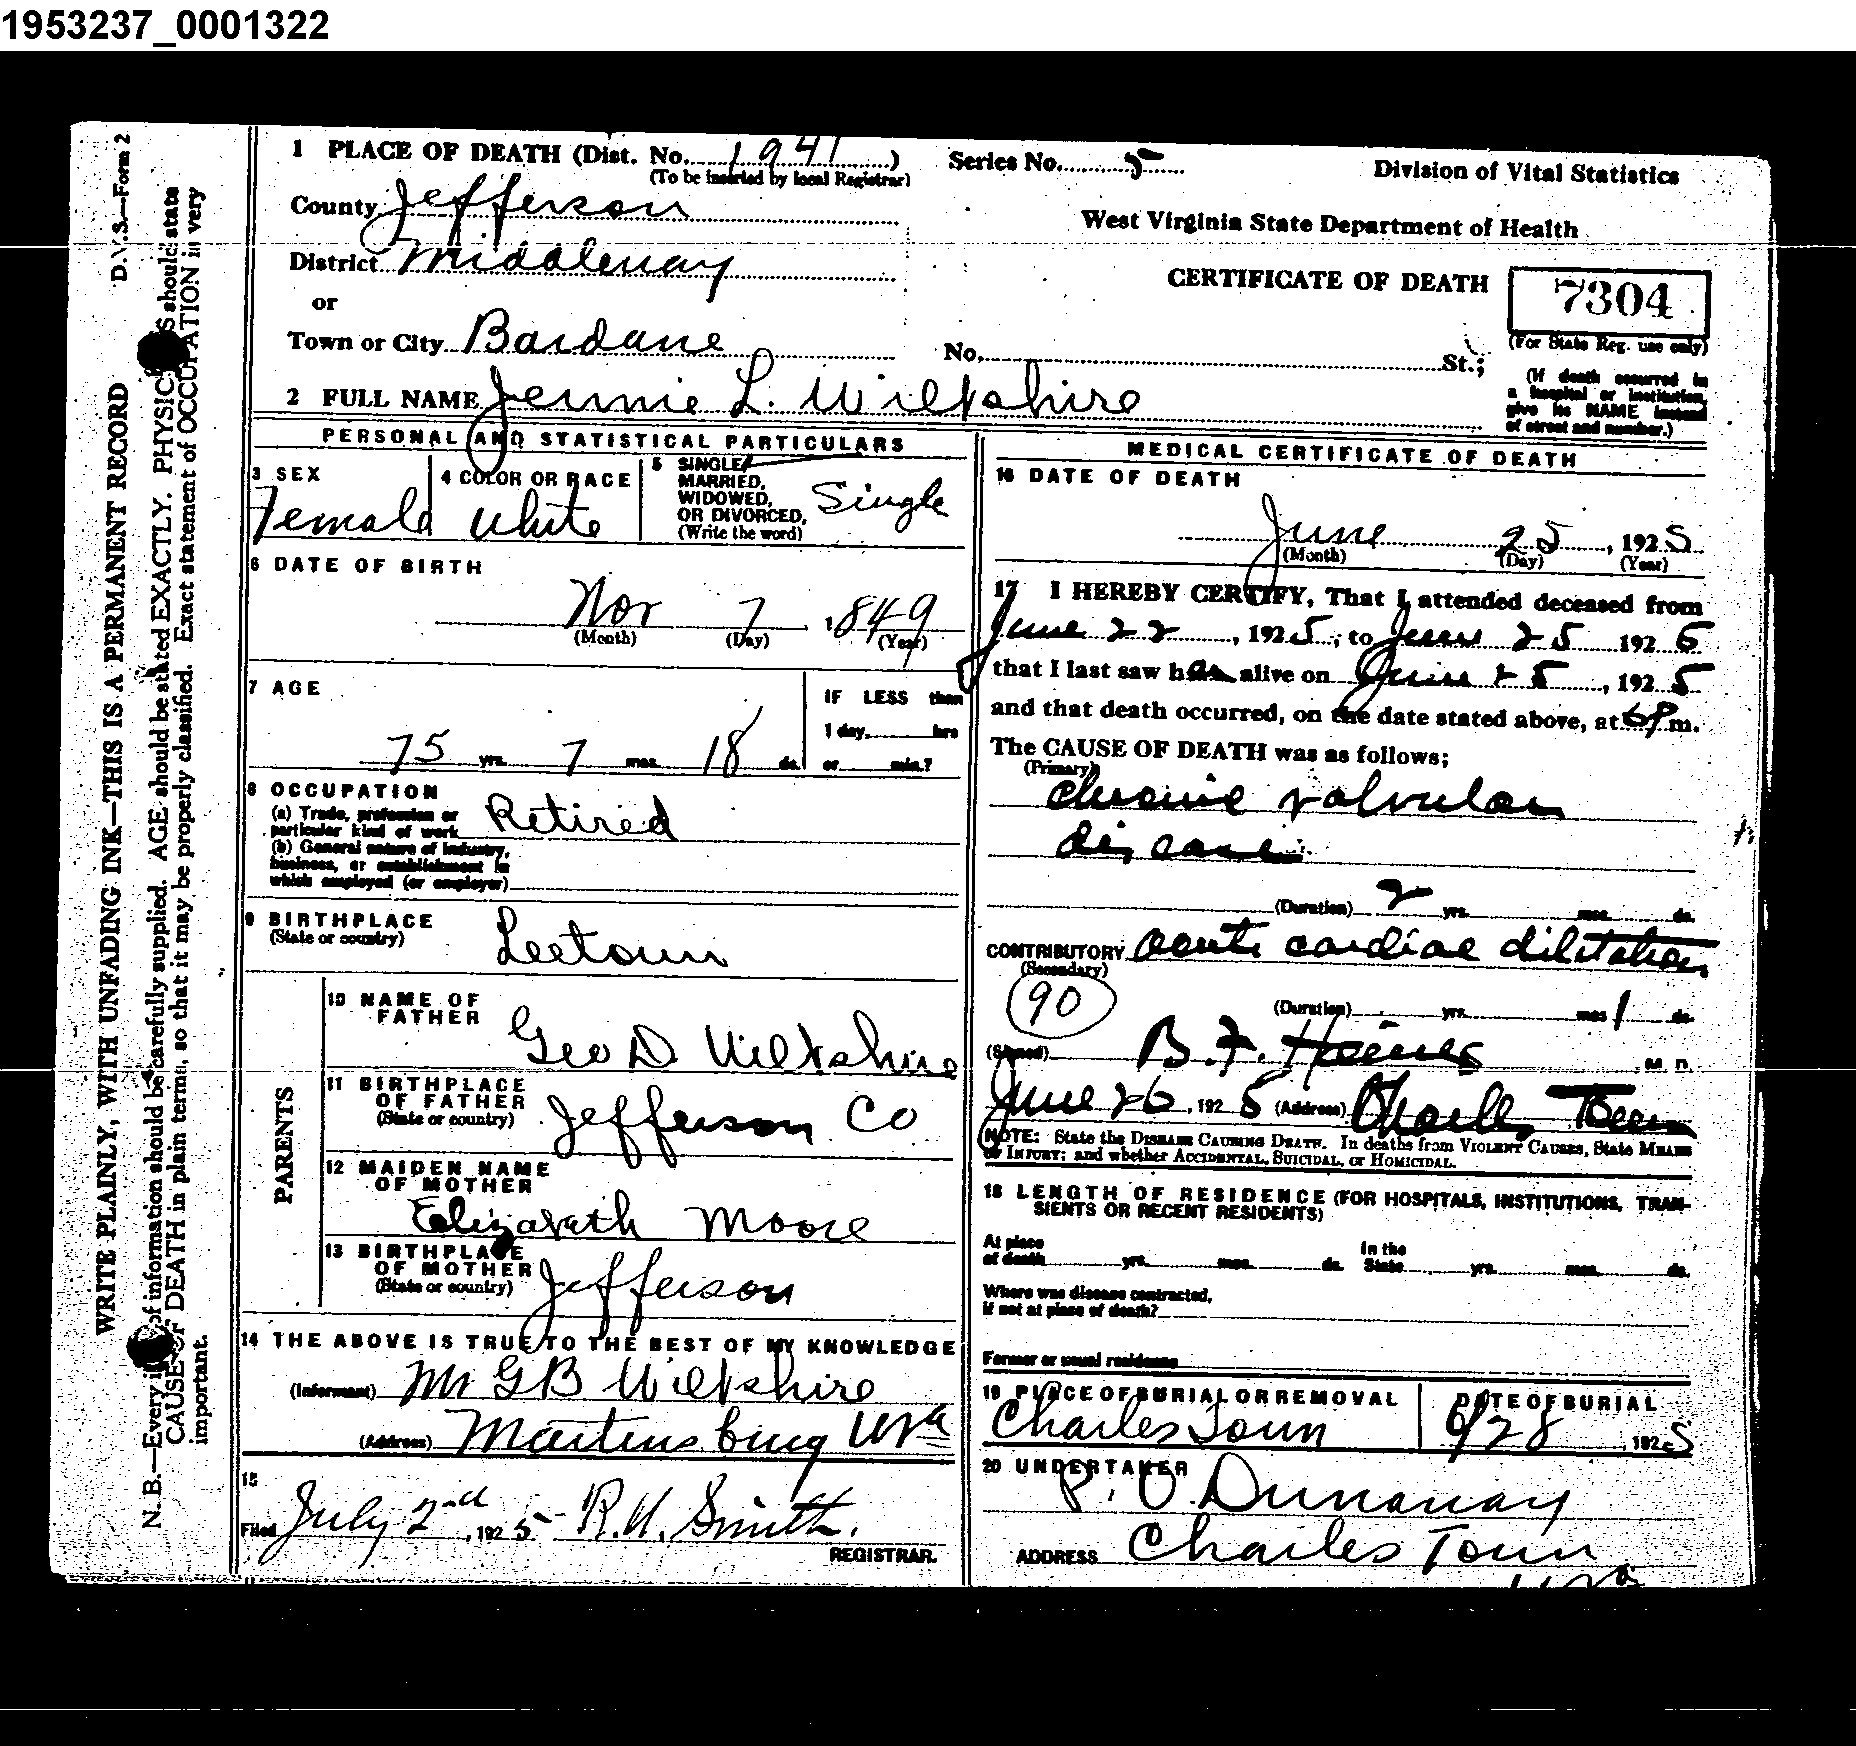 1953237_0001322
D.V.S.—Form 2
WRITE PLAINLY, WITH UNFADING INK—THIS IS A PERMANENT RECORD
N. B.—Every of information should be carefully supplied. AGE should be stated EXACTLY. PHYSIC S should state
CAUSE OF DEATH in plain terms, so that it may be properly classified. Exact statement of OCCUPATION is very
important.
1 PLACE OF DEATH (Dist. No. 1941 )
(To be inserted by local Registrar)
Series No. 5
Division of Vital Statistics
County Jefferson
West Virginia State Department of Health
District Middleway
CERTIFICATE OF DEATH
7304
(For State Reg. use only)
or
Town or City Bardane
No. St.;
(If death occurred in
a hospital or institution,
give its NAME instead
of street and number.)
2 FULL NAME Jennie L. Wiltshire
PERSONAL AND STATISTICAL PARTICULARS
3 SEX
Female
4 COLOR OR RACE
White
5 SINGLE,
MARRIED,
WIDOWED,
OR DIVORCED,
(Write the word)
Single
6 DATE OF BIRTH
Nov 7, 1849
(Month) (Day) (Year)
7 AGE
75 yrs. 7 mos. 18 ds.
IF LESS than
1 day, hrs
or min.?
8 OCCUPATION
(a) Trade, profession or
particular kind of work Retired
(b) General nature of industry,
business, or establishment in
which employed (or employer)
9 BIRTHPLACE
(State or country)
Leetown
PARENTS
10 NAME OF
FATHER
Geo D Wiltshire
11 BIRTHPLACE
OF FATHER
(State or country)
Jefferson Co
12 MAIDEN NAME
OF MOTHER
Elizabeth Moore
13 BIRTHPLACE
OF MOTHER
(State or country)
Jefferson
14 THE ABOVE IS TRUE TO THE BEST OF MY KNOWLEDGE
(Informant) Mr G B Wiltshire
(Address) Martinsburg WVa
15
Filed July 2nd, 1925 R.H. Smith.
REGISTRAR.
MEDICAL CERTIFICATE OF DEATH
16 DATE OF DEATH
June 25, 1925
(Month) (Day) (Year)
17 I HEREBY CERTIFY, That I attended deceased from
June 22, 1925, to June 25 1925
that I last saw her alive on June 25, 1925
and that death occurred, on the date stated above, at 6 P m.
The CAUSE OF DEATH was as follows;
(Primary)
Chronic valvular
disease
(Duration) 2 yrs. mos. ds.
CONTRIBUTORY acute cardiac dilitation
(Secondary)
90
(Duration) yrs. mos 1 ds.
(Signed) B. F. M. D.
June 26, 1925 (Address) Charles Town
NOTE: State the DISEASE CAUSING DEATH. In deaths from VIOLENT CAUSES, State MEANS
OF INJURY; and whether ACCIDENTAL, SUICIDAL, or HOMICIDAL.
18 LENGTH OF RESIDENCE (FOR HOSPITALS, INSTITUTIONS, TRAN-
SIENTS OR RECENT RESIDENTS)
At place
of death yrs. mos. ds.
In the
State yrs. mos. ds.
Where was disease contracted,
if not at place of death?
Former or usual residence
19 PLACE OF BURIAL OR REMOVAL
Charles Town
DATE OF BURIAL
6/28, 1925
20 UNDERTAKER
P. O. Dunaway
ADDRESS Charles Town
WVa